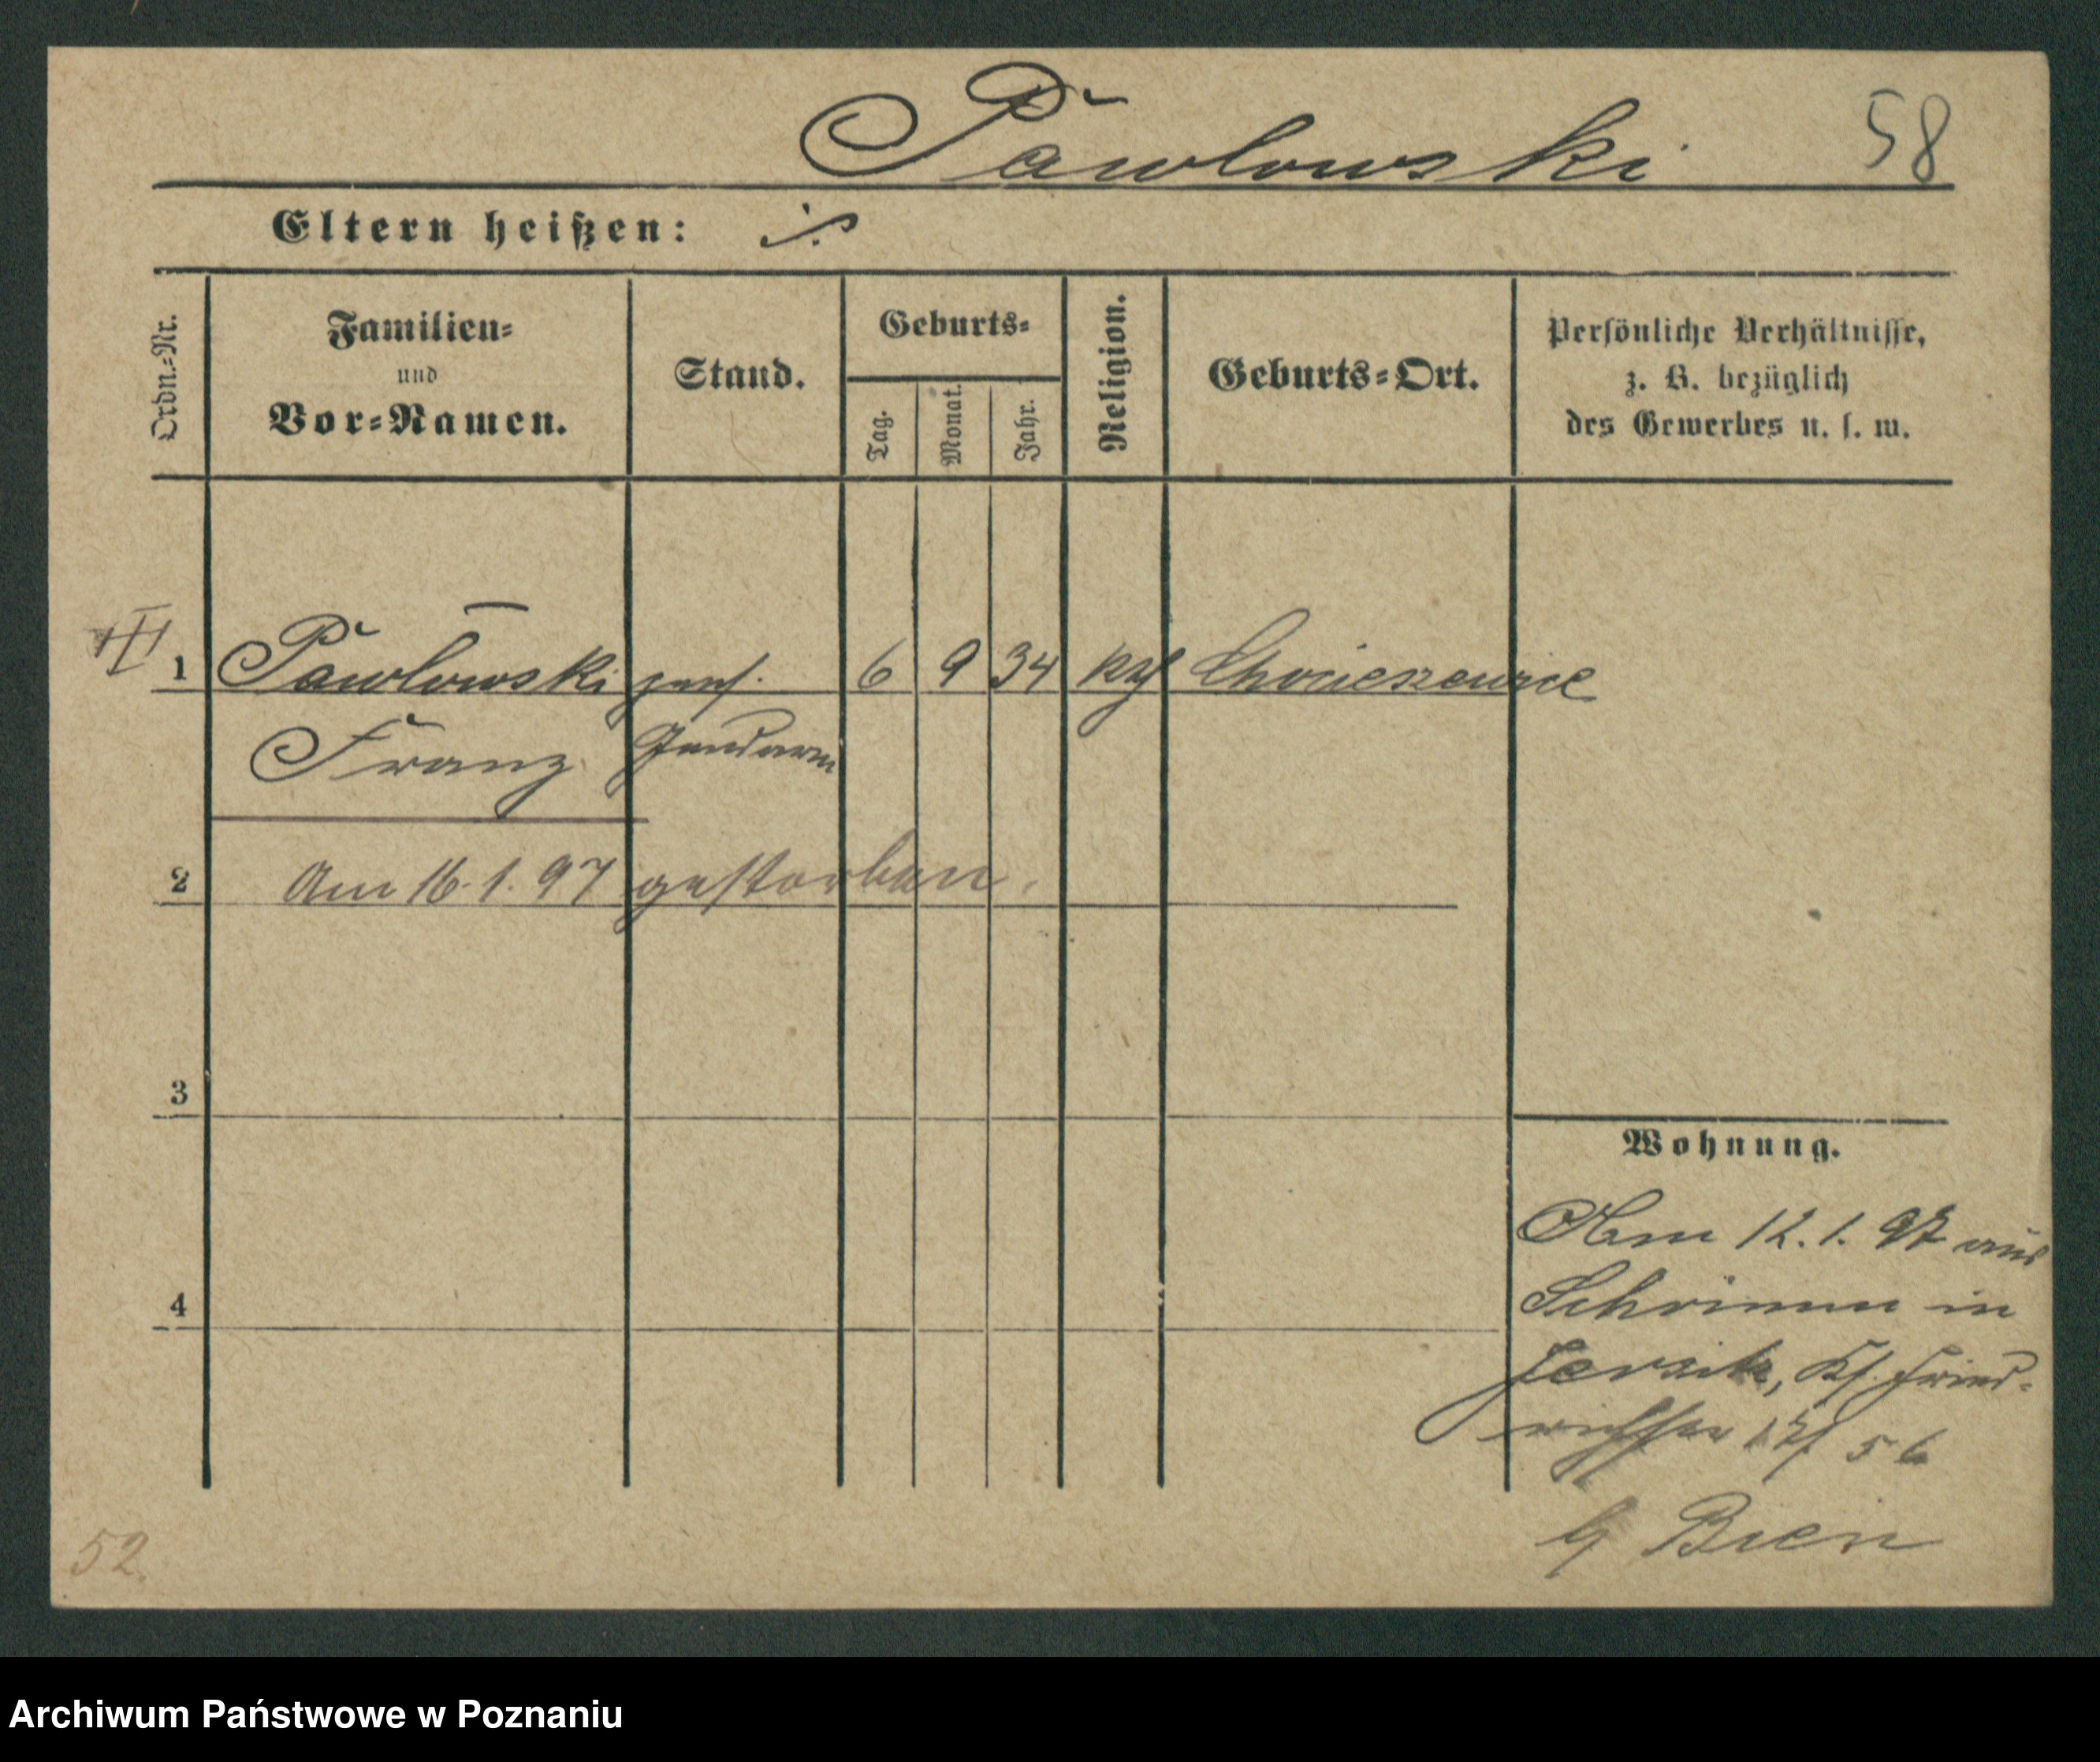 Pawlowski 58
Eltern heißen: ./.
Ordn.=Nr.
Familien=
und
Vor=Namen.
Stand.
Geburts=
Tag.
Monat.
Jahr.
Religion.
Geburts=Ort.
Persönliche Verhältnisse,
z. B. bezüglich
des Gewerbes u. s. w.
1 Pawlowski pens. 6 9 34 kath Chocieszewice
Franz Gendarm
2 Am 16.1.97 gestorben.
3
4
Wohnung.
Am 12.1.97 aus
Schrimm in
Jersitz, Kf. Fried-
56
b/ Bien
52.
Archiwum Państwowe w Poznaniu